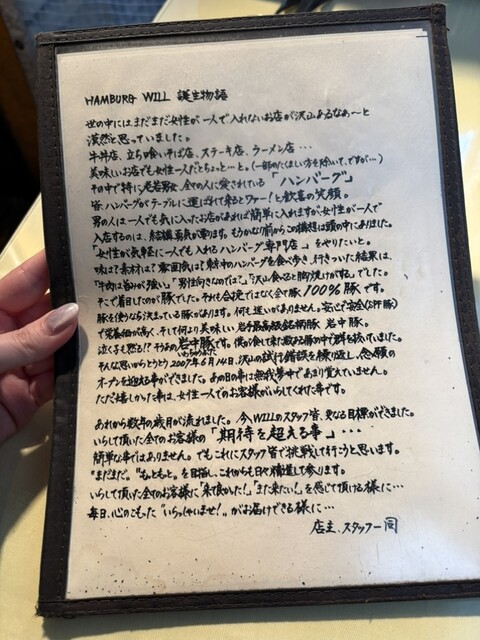 HAMBURG WILL 誕生物語
世の中には、まだまだ女性が一人で入れないお店が沢山あるなぁ～と
漠然と思っていました。
牛丼店、立ち喰いそば店、ステーキ店、ラーメン店・・・
美味しいお店でも女性一人だとちょっと…と。(一部のたくましい方を除いて、ですが…)
その中で特に老若男女、全ての人に愛されている「ハンバーグ」
皆、ハンバーグがテーブルに運ばれて来るとワァー！と歓喜の笑顔。
男の人は一人でも気に入ったお店があれば簡単に入れますが、女性が一人で
入店するのは、結構勇気が要ります。もうかなり前からこの構想は頭の中にありました。
「女性が気軽に一人でも入れるハンバーグ専門店…」をやりたいと。
味は？素材は？雰囲気は？数多のハンバーグを食べ歩き、行きついた結果は、
「牛肉は臭みが強い。」「男性向きなのでは？」「沢山食べると胸焼けがする。」でした。
そこで着目したのが豚でした。それも合挽ではなく全て豚、100%豚です。
豚を使うなら決まっている豚があります。何も迷いがありません。安心で安全(SPF豚)
で栄養価が高く、そして何より美味しい岩手最高級銘柄豚 岩中豚。
泣く子も黙る!? そうあの岩中豚です。僕が食して来た数ある豚の中で群を抜いていました。
いわちゅうぶた
そんな思いからとうとう2007年6月14日、沢山の試行錯誤を繰り返し、念願の
オープンを迎える事ができました。あの日の事は無我夢中であまり覚えていません。
ただ嬉しかった事は、女性一人でのお客様がいらしてくれた事です。
あれから数年の歳月が流れました。今、WILLのスタッフ皆、更なる目標ができました。
いらして頂いた全てのお客様の「期待を超える事」・・・
簡単な事ではありません。でもこれにスタッフ皆で挑戦して行こうと思います。
"まだまだ。""もっともっと。"を目指し、これからも日々精進して参ります。
いらして頂いた全てのお客様に「来て良かった！」「また来たい！」を感じて頂ける様に・・・
毎日、心のこもった"いらっしゃいませ！"がお届けできる様に・・・
店主、スタッフ一同